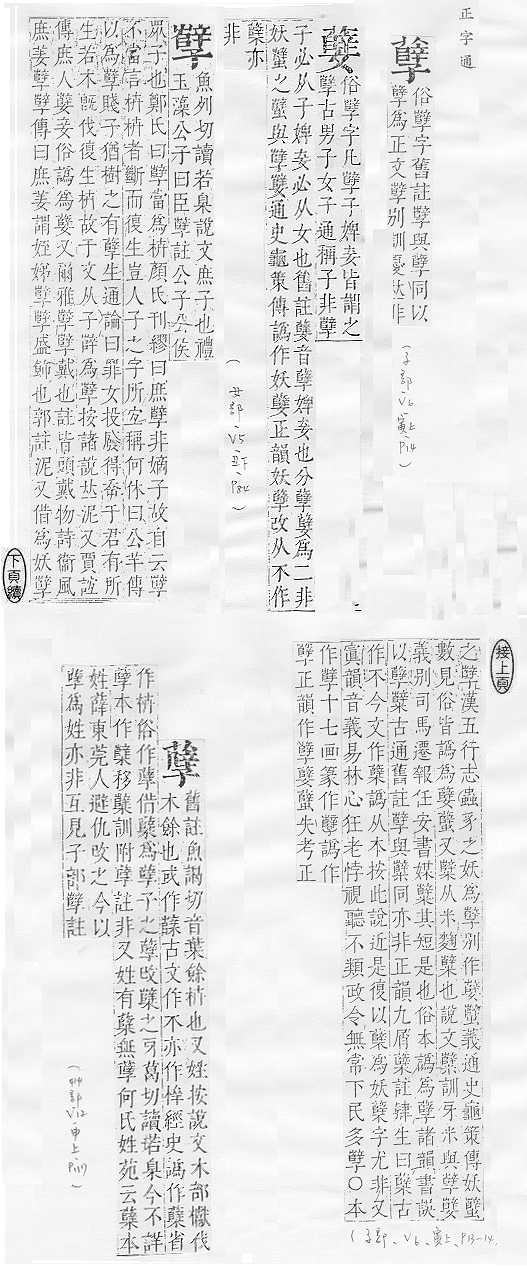 正字通
孼
俗孽字舊註孼與孽同以
孽為正文孼別訓憂𠀤非
(子部、V6、寅上、P14)
㜸
俗孽字凡孽子婢妾皆謂之
孽古男子女子通稱子非孽
子必从子婢妾必从女也舊註㜸音孽婢妾也分孽㜸為二非
妖蠥之蠥與孽㜸通史龜策傳譌作妖㜸正韻妖孽改从不作
糵亦
非
(女部、V5、丑下、P84)
孽
魚列切讀若臬說文庶子也禮
玉藻公子曰臣孽註公子公侯
衆子也鄭氏曰孽當為枿顏氏刊繆曰庶孽非嫡子故自云孽
不當言枿枿者斷而復生豈人子之字所宜稱何休曰公羊傳
以為孽賤子猶樹之有孽生通論曰罪女投廢得奉于君有所
生若木旣伐復生枿故于文从子辥為孽按諸說𠀤泥又賈誼
傳庶人㜸妾俗譌為㜸又爾雅孽孽戴也註皆頭戴物詩衞風
庶姜孽孽傳曰庶姜謂姪娣孽孽盛飾也郭註泥又借為妖孽
下頁續
接上頁
之孽漢五行志蟲豸之妖為孽別作㜸蠥義通史龜策傳妖蠥
數見俗皆譌為㜸蠥又糵从米麴糵也說文糵訓牙米與孽㜸
義別司馬遷報任安書媒糵其短是也俗本譌為孽諸韻書誤
以孽糵古通舊註孽與糵同亦非正韻九屑糵註肄生曰糵古
作不今文作蘖譌从木按此說近是復以糵為妖糵字尤非又
寘韻音義易林心狂老悖視聽不類政令無常下民多孽○本
作孽十七画篆作孼譌作
孼正韻作孽㜸蠥失考正
(子部、V6、寅上、P13-14)
孽
舊註魚謁切音葉餘枿也又姓按說文木部㰇伐
木餘也或作蘖古文作不亦作㭬經史譌作蘖省
作枿俗作孽借糵為孽子之孽改糵之牙葛切讀若臬今不詳
孽本作糵移糵訓附孽註非又姓有糵無孽何氏姓苑云糵本
姓薛東莞人避仇改之今以
孽為姓亦非互見子部孽註
(艸部、V12、申上、P117)